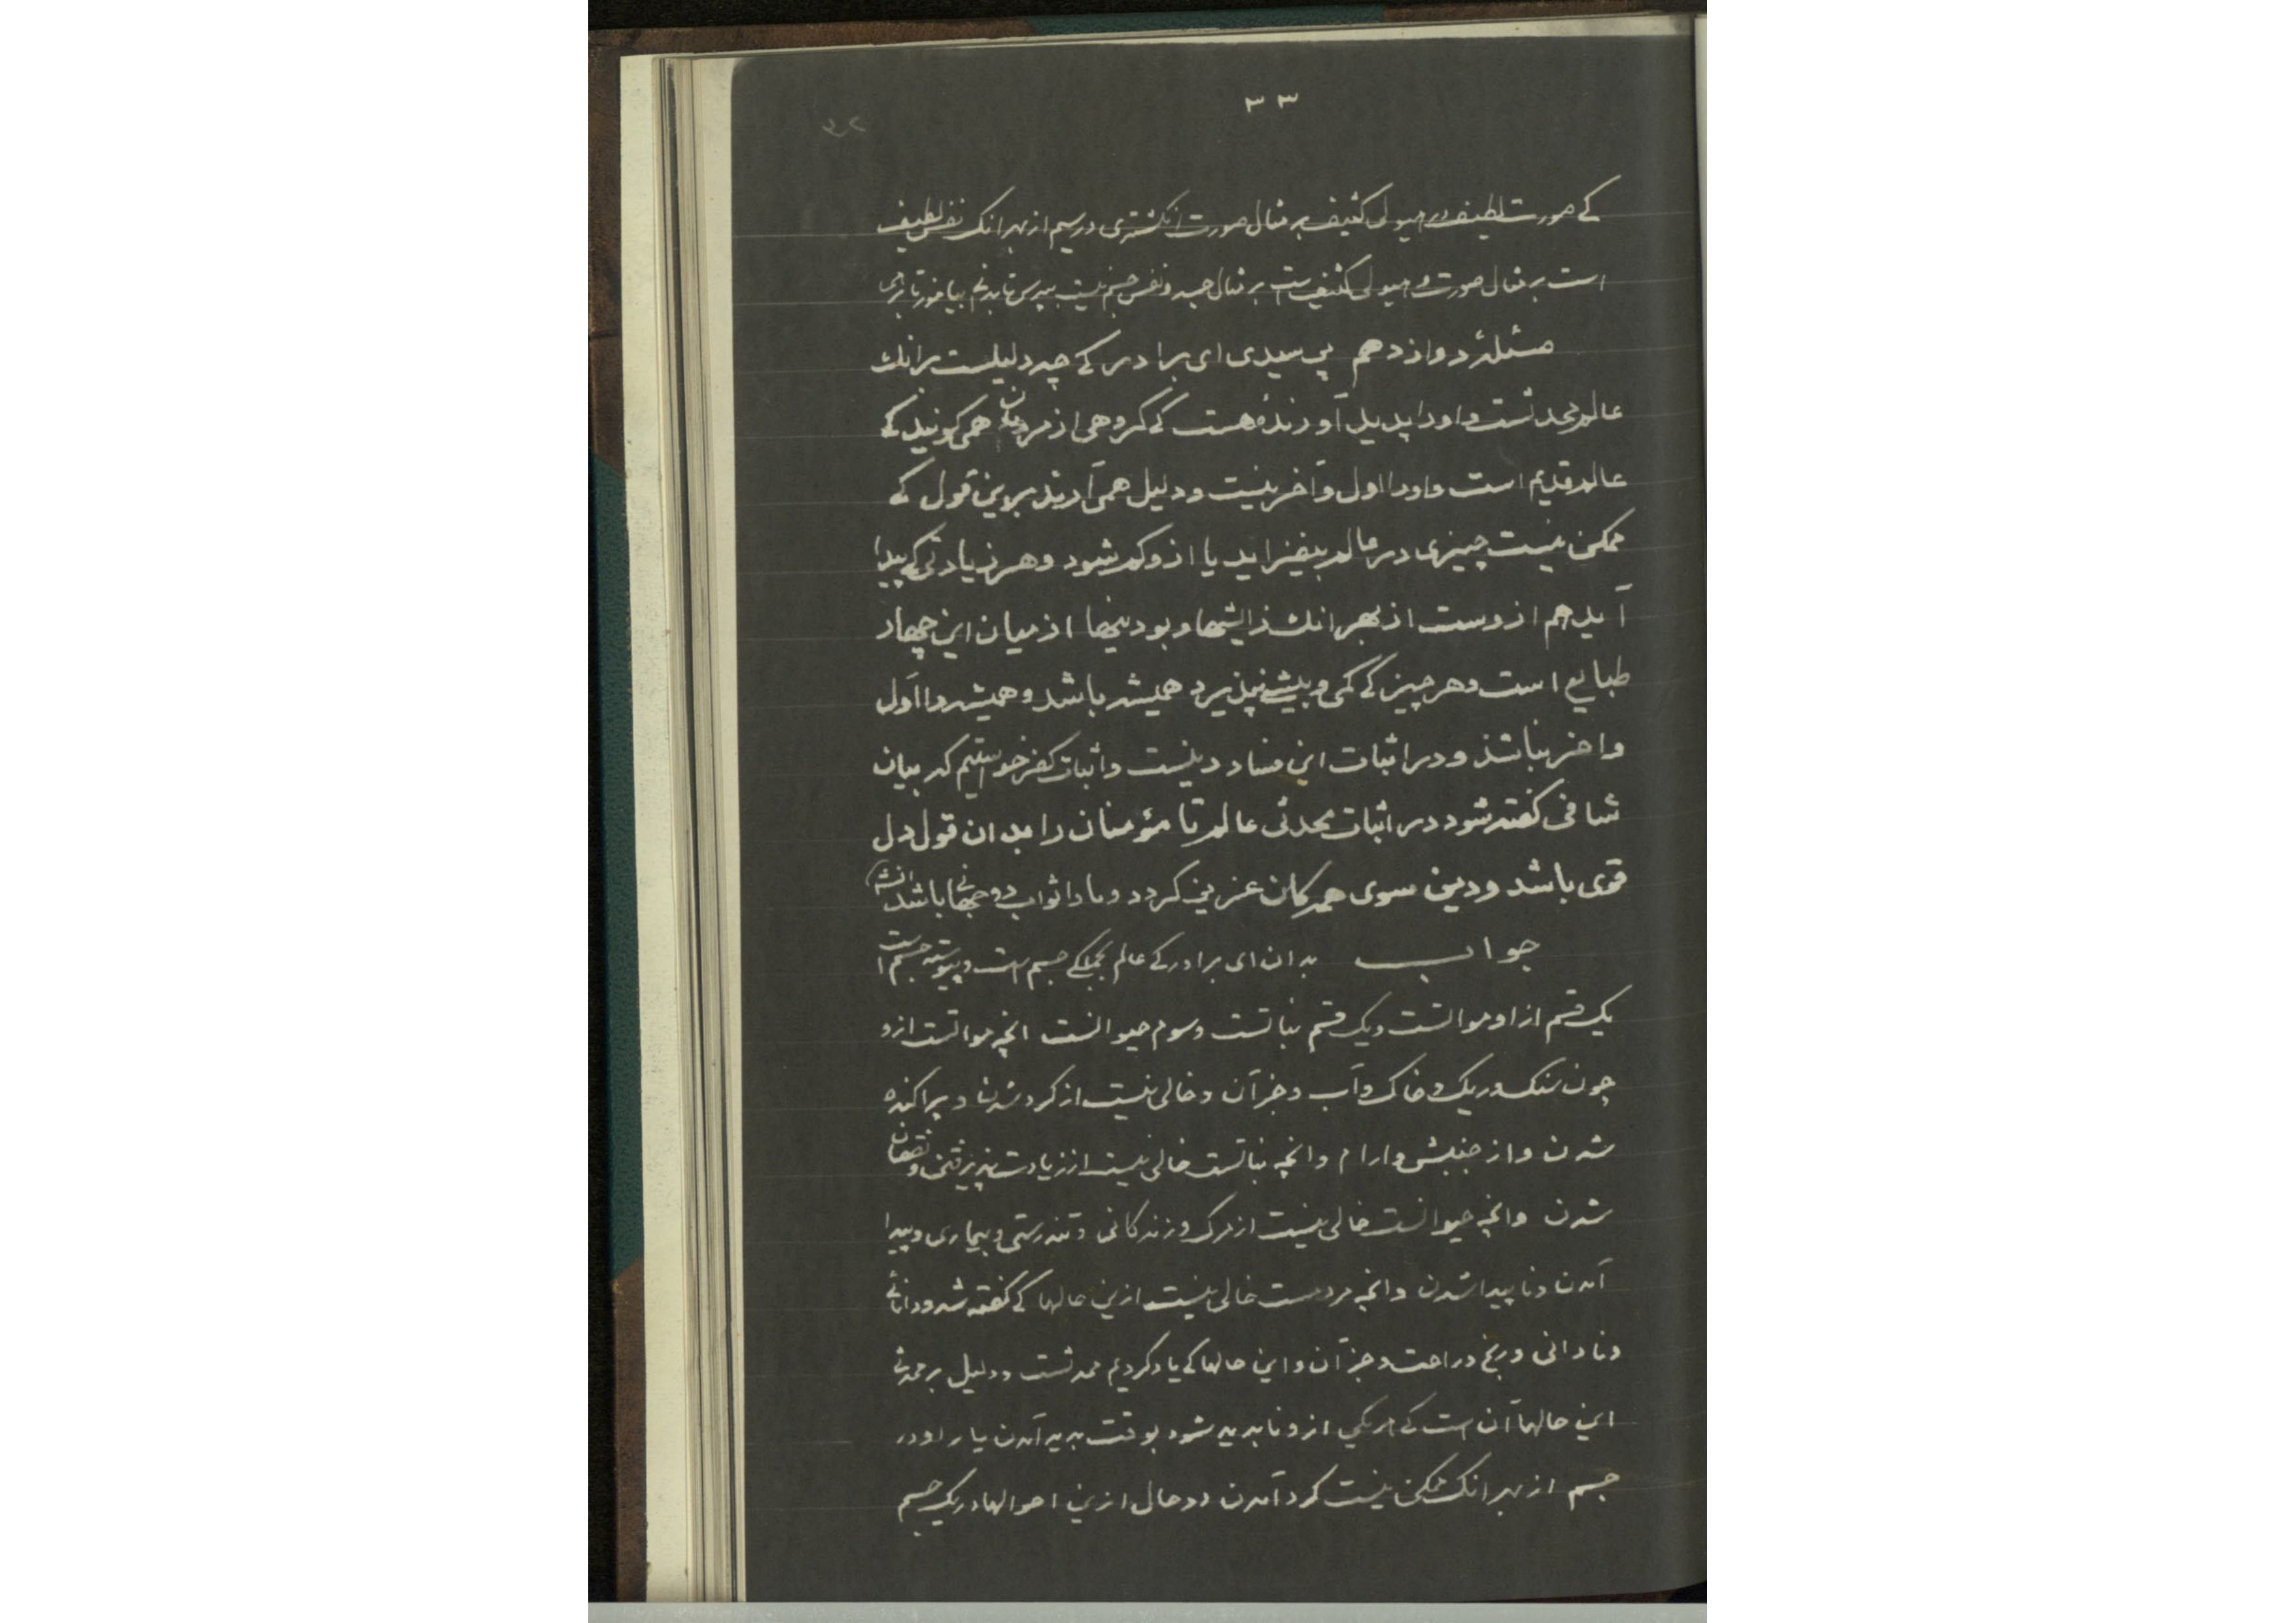 ۳۳
۳۲
کے صورت لطیف در هیولی کثیف بر مثال صورت انکشتری در سیم از بهر انک نفس لطیف
است بر مثال صورت و هیولی کثیف است بر مثال جسد و نفس جسم نیست بپرس تا بدانی بیاموز تا برهی
مسئلهٔ دوازدهم پرسیدی ای برادر کے چه دلیلست برانک
عالم محدثست و اورا پدید آورندهٔ هست کے کروهی از مردمان همی کویند کے
عالم قدیم است و اورا اول و آخر نیست و دلیل همی آرند برین قول کے
ممکن نیست چیزی در عالم بیفزاید یا ازو کم شود و هر زیادتی کے پیدا
آید هم ازوست از بهر انک زایشها و بودنیها از میان این چهار
طبایع است و هر چیز کے کمی و بیشے نپذیرد همیشه باشد و همیشه را اول
واخر نباشذ و در اثبات این فساد دینست و اثبات کفر خواستیم که بیان
شافی کفته شود در اثبات محدثی عالم تا مؤمنان را بدان قول دل
قوی باشد و دین سوی همه کان عزیز کردد و ما را ثواب دوجهانی باشد انشه
جواب بدان ای برادر کے عالم بجملکے جسم است و پیوسته جسم است
یک قسم ازاو مواتست و یک قسم نباتست و سوم حیوانست انچه مواتست ازو
چون سنک و ریک و خاک و آب و جز آن و خالی نیست از کرد شدن و پراکنده
شدن و از جنبش و ارام و انچه نباتست خالی نیست از زیادت پذیرفتن و نقصان
شدن و انچه حیوانست خالی نیست از مرک و زندکانی و تندرستی و بیماری و پیدا
آمدن و ناپیدا شدن و انچه مردمست خالی نیست ازین حالها کے کفته شد و دانائے
و نادانی و رنج و راحت و جز آن و این حالها کے یاد کردیم محدثست و دلیل بر محدثی
این حالها آن است کے هر یکی ازو ناپدید شود بوقت پدید آمدن یار او در
جسم از بهر انک ممکن نیست کرد آمدن دو حال ازین احوالها در یک جسم